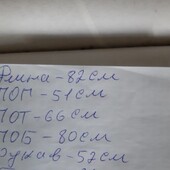 Длина-82см
ПОГ-51см
ПОТ-66см
ПОБ-80см
Рукав-52см